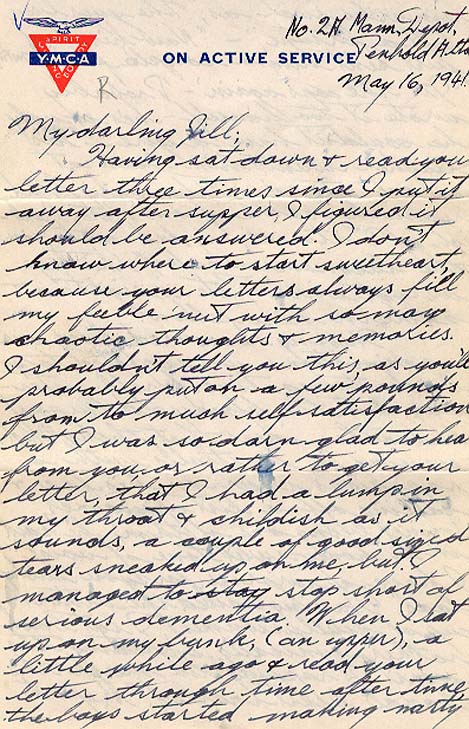 SPIRIT
Y·M·C·A
No. 2A. Mann. Depot,
ON ACTIVE SERVICE
Penhold Alta
May 16, 1941
R
My darling Jill;
Having sat down & read you
letter three times since I put it
away after supper, I figured it
should be answered. I don't
know where to start sweetheart,
because your letters always fill
my feeble nut with so many
chaotic thoughts & memories.
I shouldn't tell you this, as you'll
probably put on a few pounds
from to much self-satisfaction
but I was so darn glad to hea
from you, or rather to get your
letter, that I had a lump in
my throat & childish as it
sounds, a couple of good sized
tears sneaked up on me, but I
managed to stay stop short of
serious dementia. When I sat
up on my bunk, (an upper), a
little while ago & read your
letter through time after time
the boys started making narty